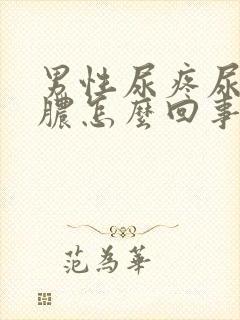 男性尿疼尿
膿怎麼回事
范為華